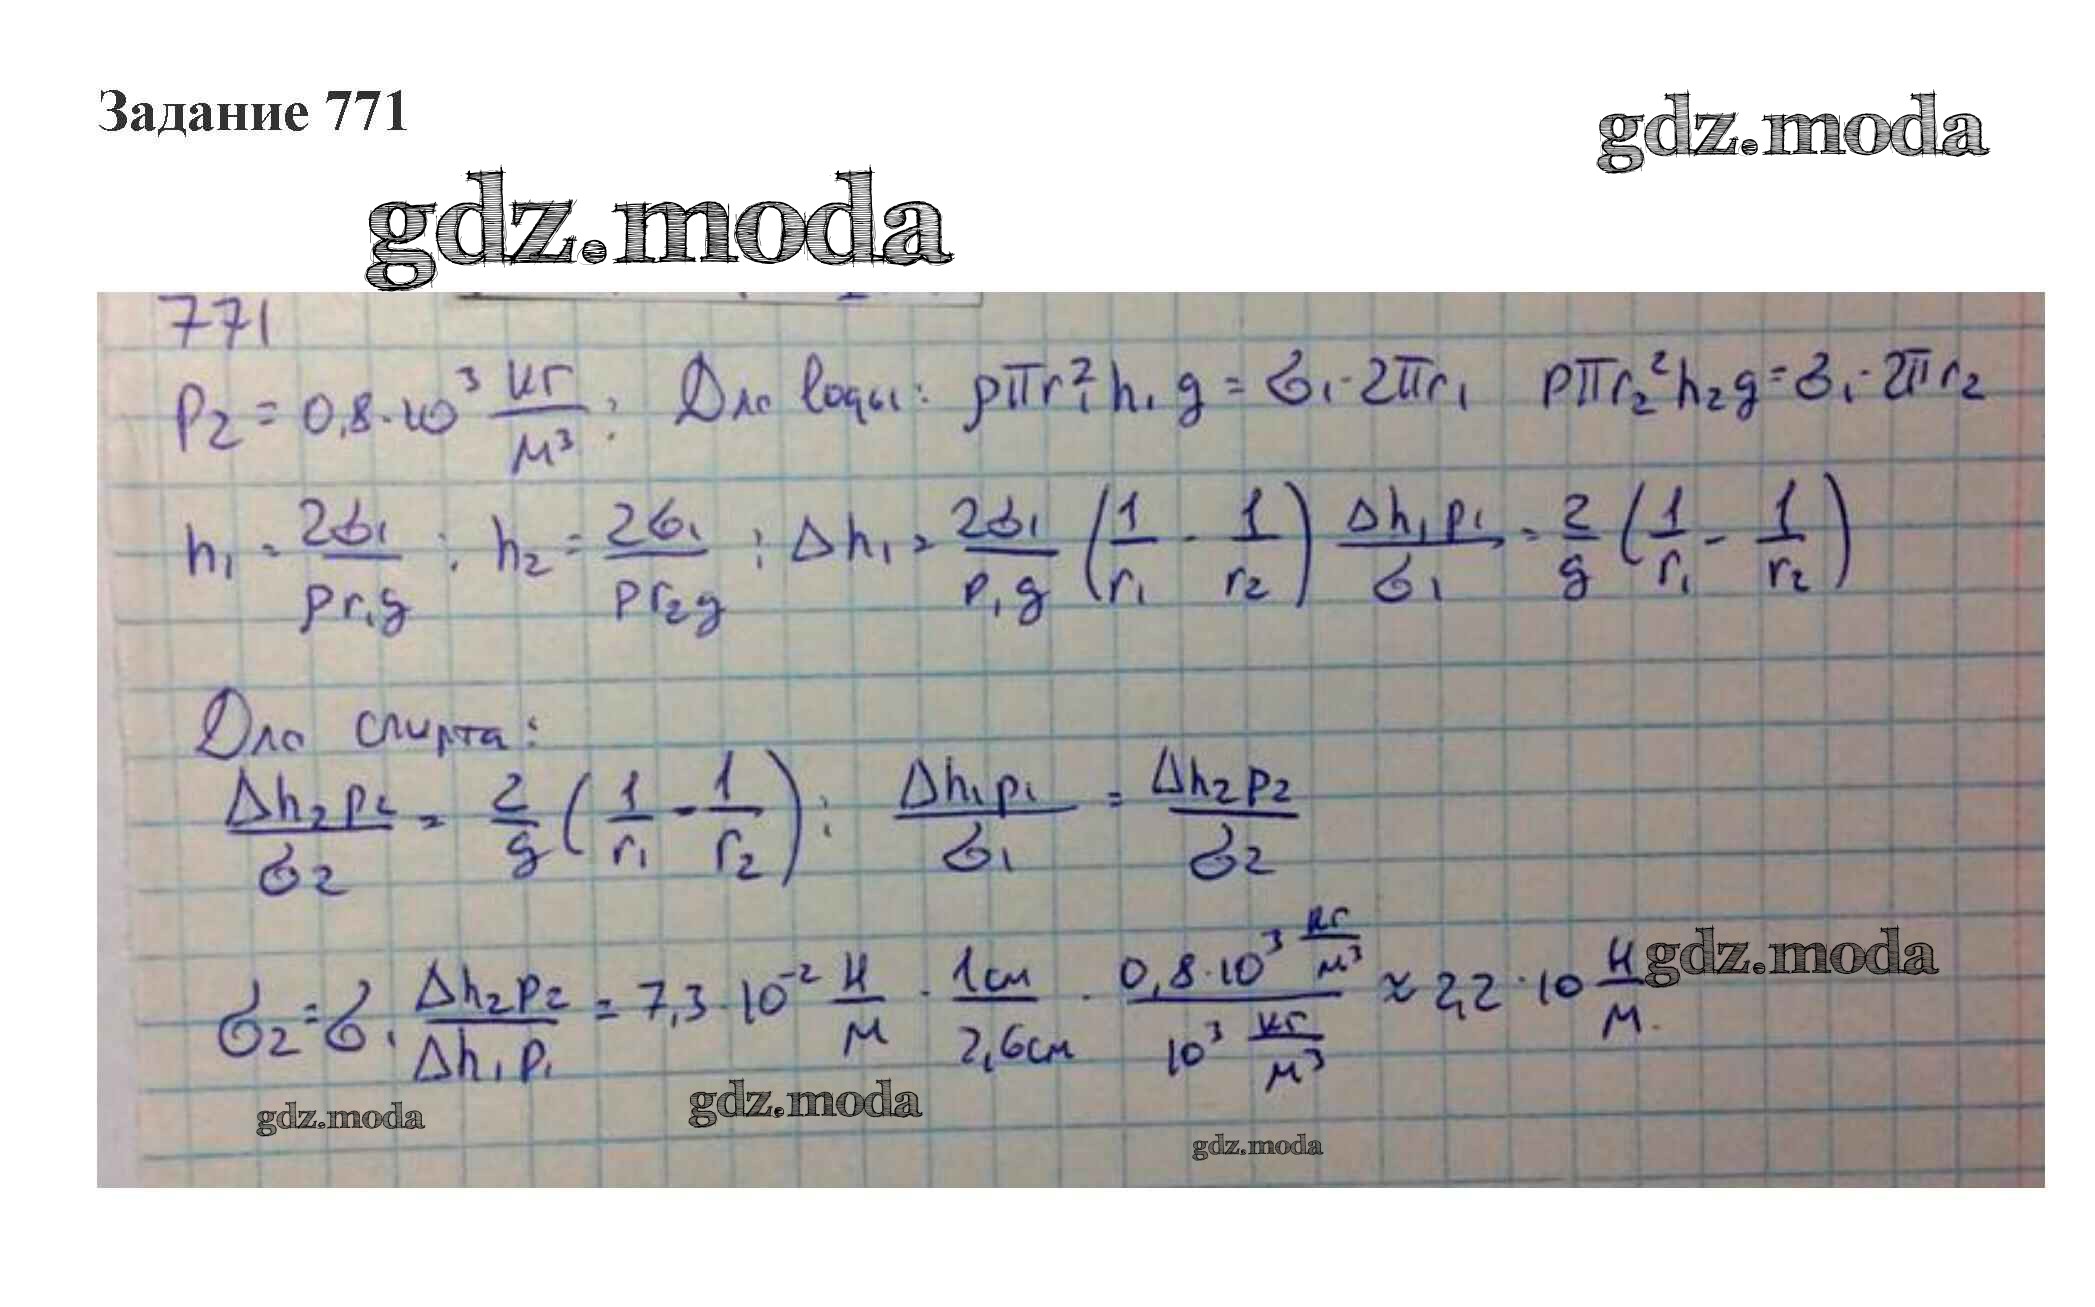 Задание 771
gdz.moda
gdz.moda
771
ρ₂ = 0,8·10³ кг/м³; Для воды: ρπr₁²h₁g = σ₁·2πr₁ ρπr₂²h₂g = σ₁·2πr₂
h₁ = 2σ₁/ρr₁g; h₂ = 2σ₁/ρr₂g; Δh₁ = 2σ₁/ρ₁g (1/r₁ - 1/r₂) Δh₁ρ₁/σ₁ = 2/g (1/r₁ - 1/r₂)
Для спирта:
Δh₂ρ₂/σ₂ = 2/g (1/r₁ - 1/r₂); Δh₁ρ₁/σ₁ = Δh₂ρ₂/σ₂
σ₂ = σ₁ Δh₂ρ₂/Δh₁ρ₁ = 7,3·10⁻² Н/м · 1см/2,6см · 0,8·10³ кг/м³ / 10³ кг/м³ ≈ 2,2·10 Н/м.
gdz.moda
gdz.moda
gdz.moda
gdz.moda